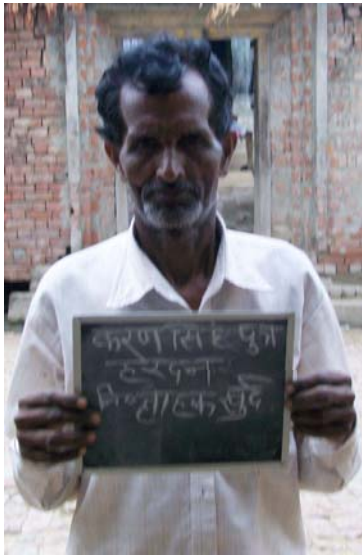 करण सिंह पुत्र
हरदन
हाकखुर्द